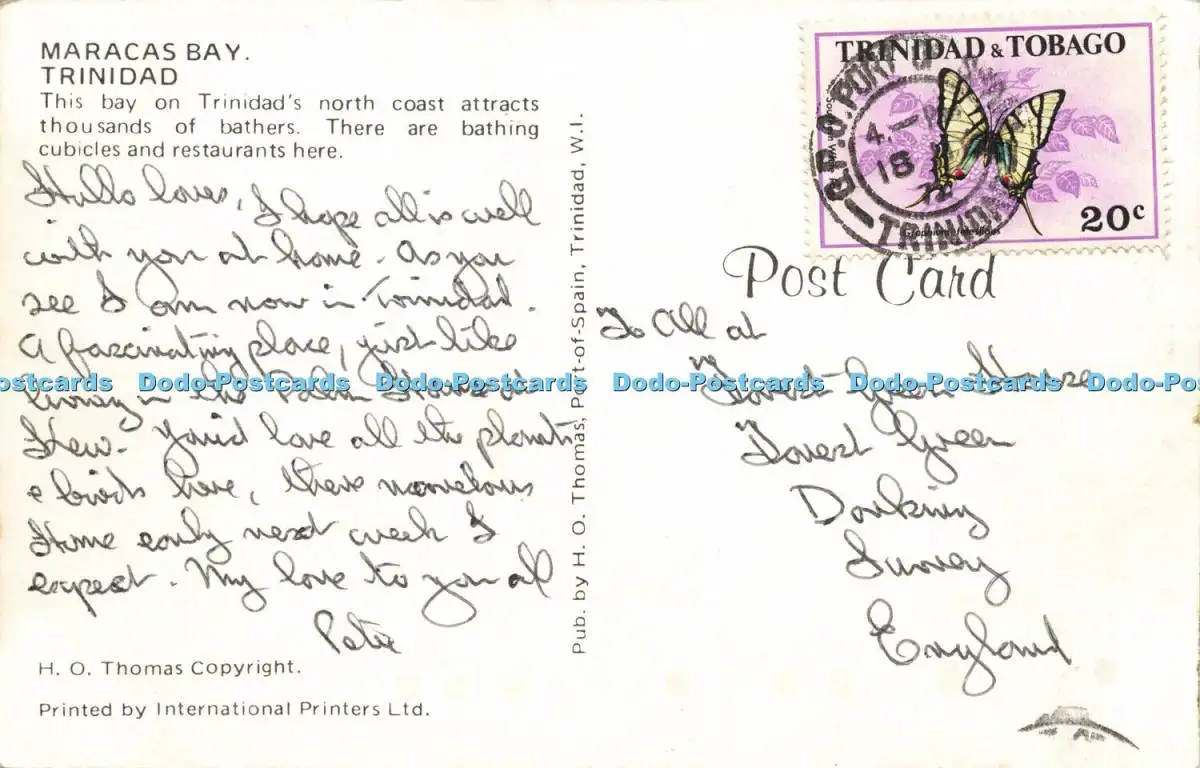 MARACAS BAY.
TRINIDAD
This bay on Trinidad's north coast attracts
thousands of bathers. There are bathing
cubicles and restaurants here.
Hello loves, I hope all is well
with you at home. As you
see I am now in Trinidad.
A fascinating place, just like
living in the Palm House at
Kew. You'd love all the plants
& birds here, there marvelous
Home early next week I
expect. My love to you all
Peter
H. O. Thomas Copyright.
Printed by International Printers Ltd.
Pub. by H. O. Thomas, Port-of-Spain, Trinidad, W.I.
TRINIDAD & TOBAGO
20c
G.P.O. PORT OF
18
72
TRINIDAD
Post Card
To All at
Forest Green House
Forest Green
Dorking
Surrey
England
Dodo-Postcards Dodo-Postcards Dodo-Postcards Dodo-Postcards Dodo-Postcards